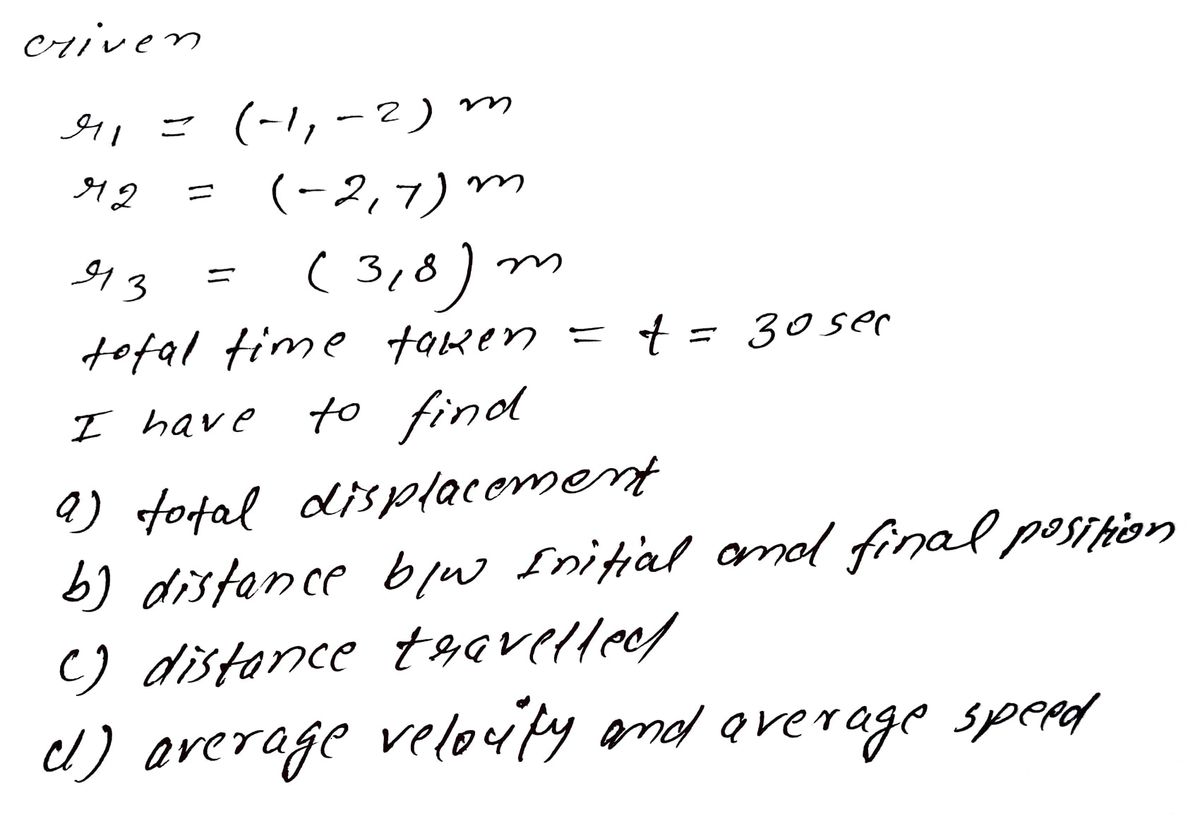 Given
r1 = (-1, -2) m
r2 = (-2, 7) m
r3 = (3, 8) m
total time taken = t = 30 sec
I have to find
a) total displacement
b) distance b/w Initial and final position
c) distance travelled
d) average velocity and average speed